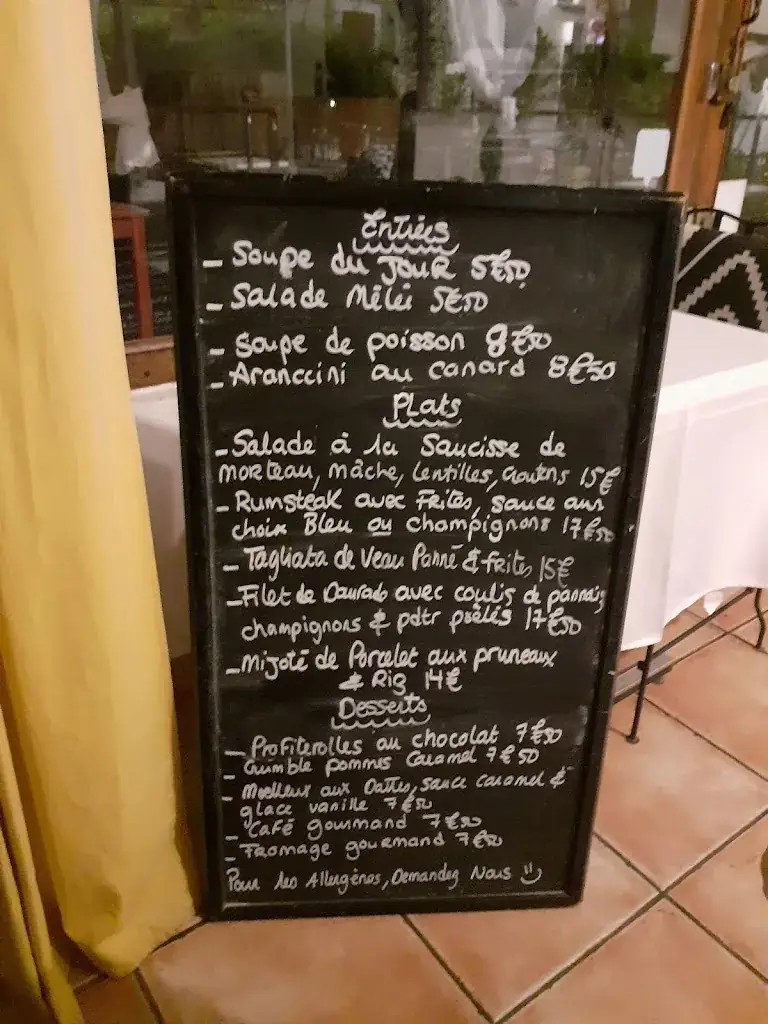 Entrées
- Soupe du Jour 5€50
- Salade Mêlée 5€50
- Soupe de poisson 8€50
- Aranccini au canard 8€50
Plats
- Salade à la Saucisse de
morteau, mâche, lentilles, croutons 15€
- Rumsteak avec Frites, sauce aux
choix Bleu ou champignons 17€50
- Tagliata de Veau Panné & frites 15€
- Filet de Daurade avec coulis de pannais
champignons & pdtr poêlés 17€50
- Mijoté de Porcelet aux pruneaux
& Riz 14€
Desserts
- Profiterolles au chocolat 7€50
- Crumble pommes Caramel 7€50
- Moelleux aux Dattes, sauce caramel &
glace vanille 7€50
- Café gourmand 7€50
- Fromage gourmand 7€50
Pour les Allergènes, Demandez Nous